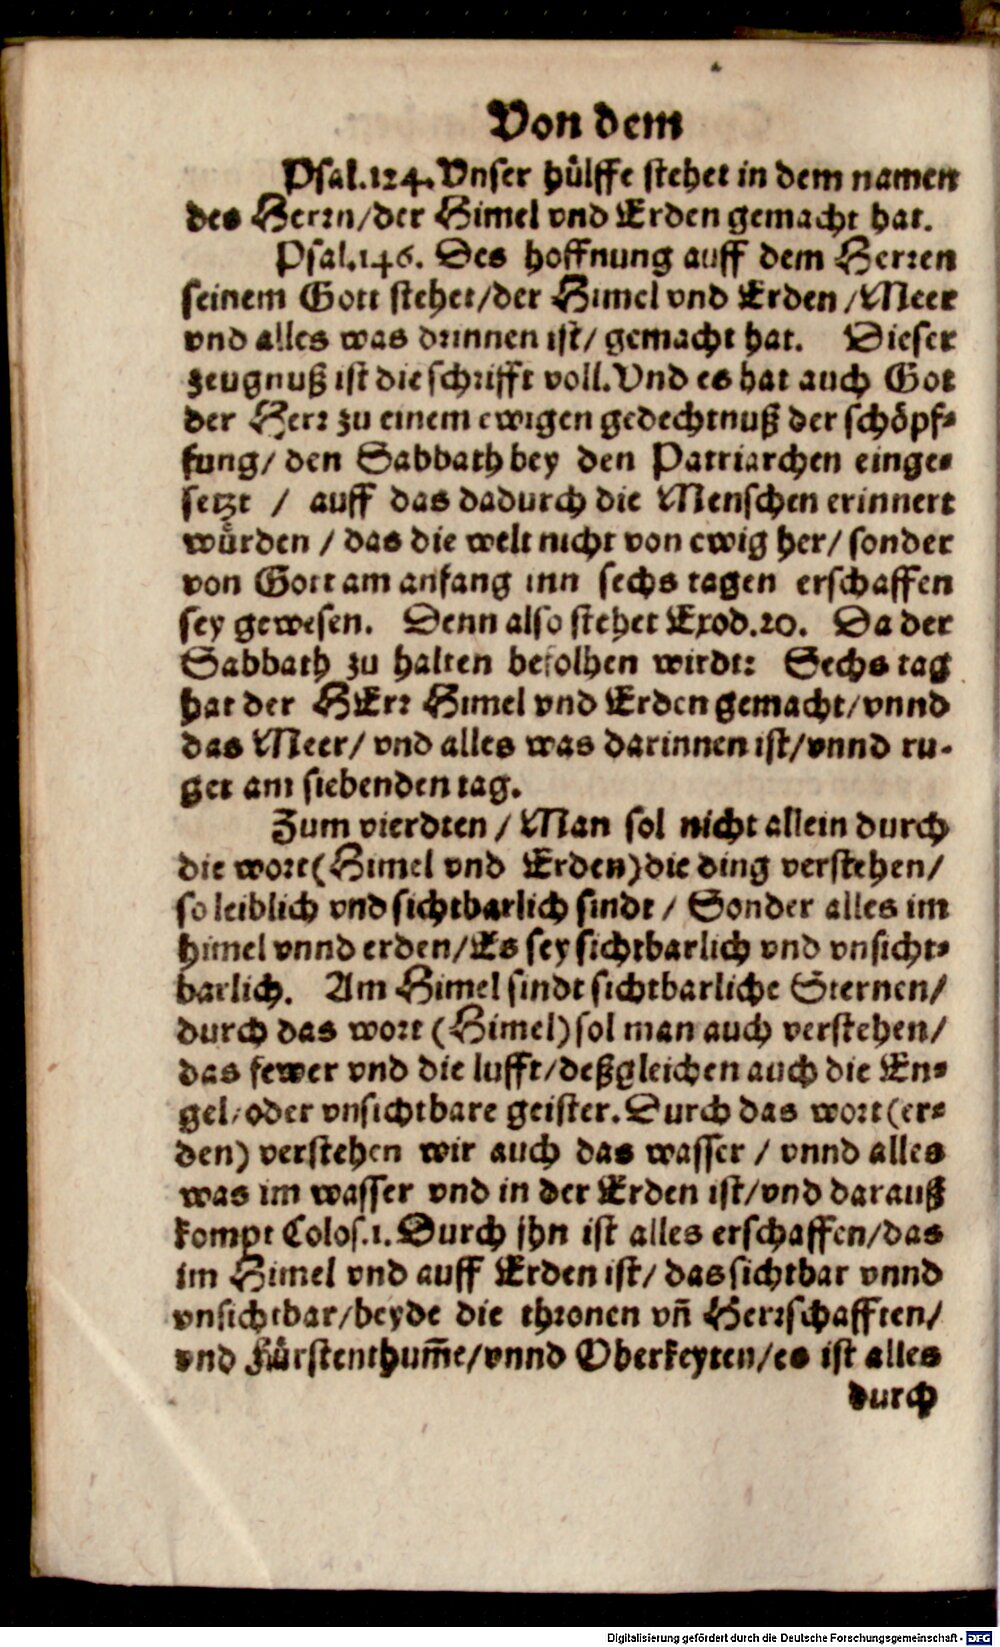 Von dem
Psal.124. Vnser hülffe stehet in dem namen
des Herrn/der Himel vnd Erden gemacht hat.
Psal.146. Des hoffnung auff dem Herren
seinem Gott stehet/der Himel vnd Erden /Meer
vnd alles was drinnen ist/ gemacht hat. Dieser
zeugnuß ist die schrifft voll. Vnd es hat auch Got
der Herr zu einem ewigen gedechtnuß der schöpf-
fung/ den Sabbath bey den Patriarchen einge-
setzt / auff das dadurch die Menschen erinnert
würden / das die welt nicht von ewig her/ sonder
von Gott am anfang inn sechs tagen erschaffen
sey gewesen. Denn also stehet Exod.20. Da der
Sabbath zu halten befolhen wirdt: Sechs tag
hat der HErr Himel vnd Erden gemacht/vnnd
das Meer/ vnd alles was darinnen ist/vnnd ru-
get am siebenden tag.
Zum vierdten / Man sol nicht allein durch
die wort(Himel vnd Erden)die ding verstehen/
so leiblich vnd sichtbarlich sindt / Sonder alles im
himel vnnd erden/Es sey sichtbarlich vnd vnsicht-
barlich. Am Himel sindt sichtbarliche Sternen/
durch das wort (Himel)sol man auch verstehen/
das fewer vnd die lufft/deßgleichen auch die En-
gel/oder vnsichtbare geister. Durch das wort(er-
den) verstehen wir auch das wasser / vnnd alles
was im wasser vnd in der Erden ist/vnd darauß
kompt Colos.1. Durch jhn ist alles erschaffen/das
im Himel vnd auff Erden ist/ das sichtbar vnnd
vnsichtbar/beyde die thronen vñ Herrschafften/
vnd Fürstenthum̃e/vnnd Oberkeyten/es ist alles
durch
Digitalisierung gefördert durch die Deutsche Forschungsgemeinschaft - DFG